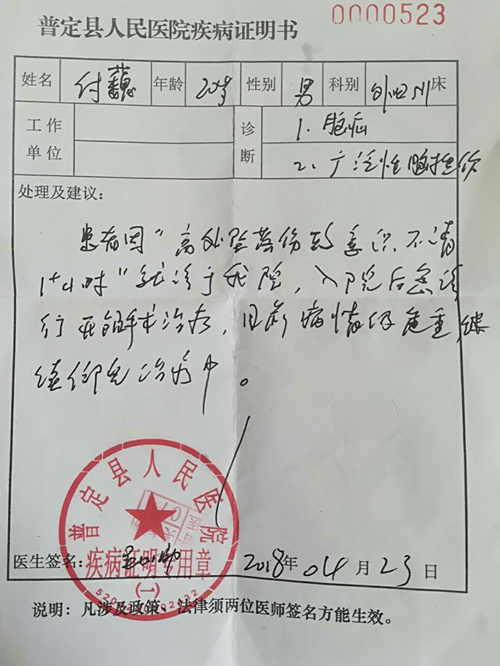 普定县人民医院疾病证明书
0000523
姓名 付巍 年龄 20岁 性别 男 科别 外四 床
工作单位
诊断 1、脑疝
2、广泛性脑挫伤
处理及建议:
患者因"高处坠落伤致意识不清
1+小时"就诊于我院,入院后急诊
行开颅手术治疗,目前病情仍危重,继
续仰卧治疗中。
普定县人民医院
疾病证明专用章
(一)
医生签名:
2018年04月23日
说明:凡涉及政策、法律须两位医师签名方能生效。